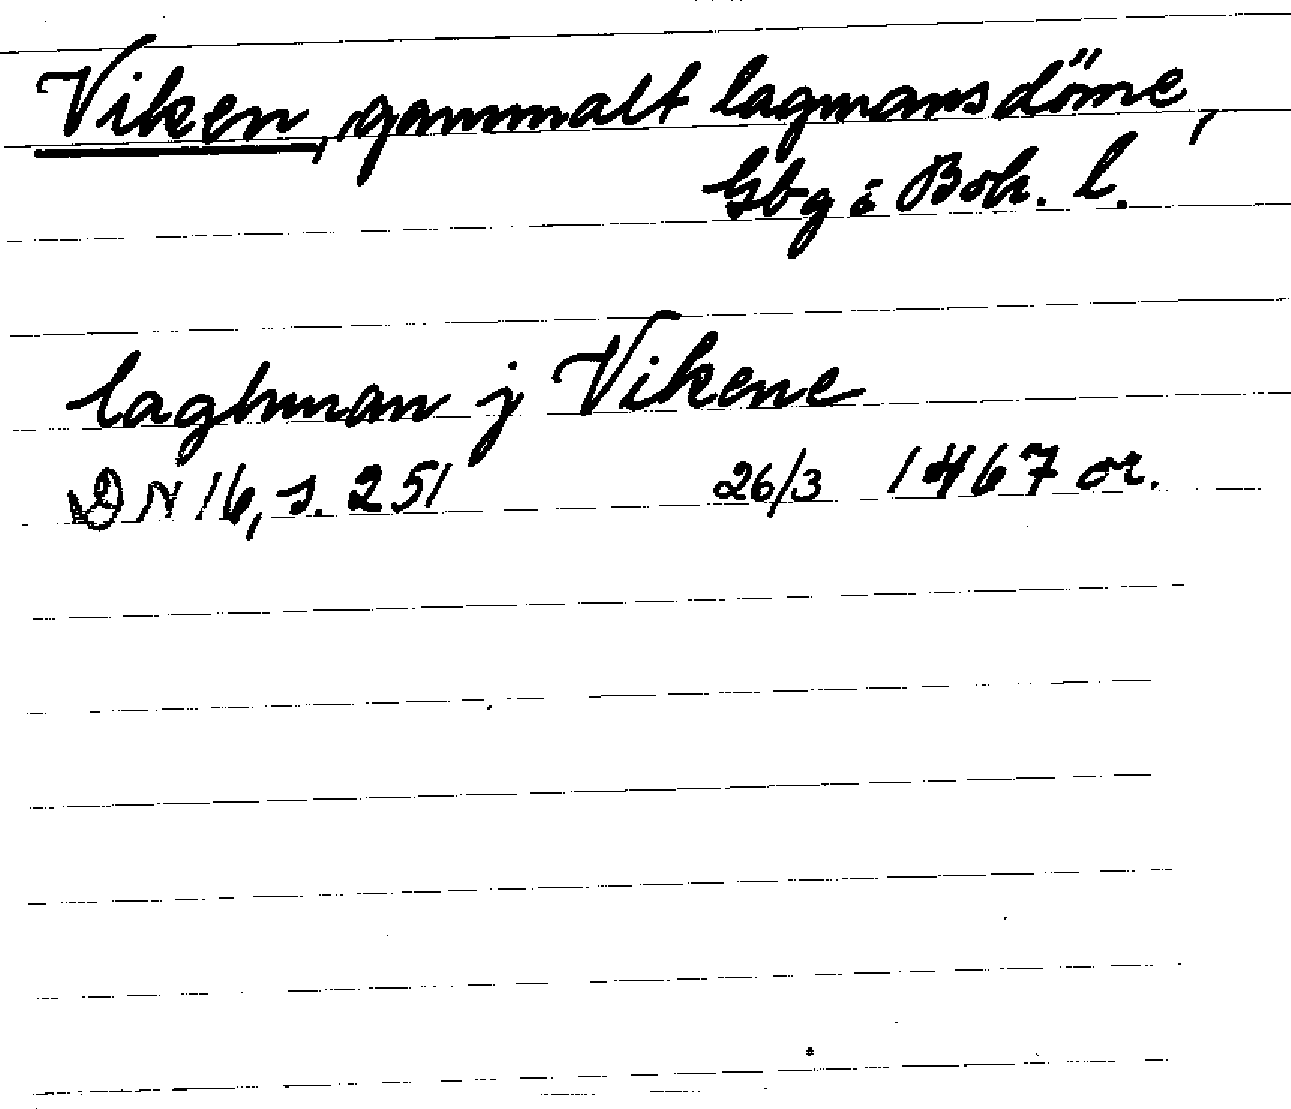 Viken, gammalt lagmansdöme,
Gbg o Boh. l.
laghman j Vikene
DN 16, s. 251 26/3 1467 or.